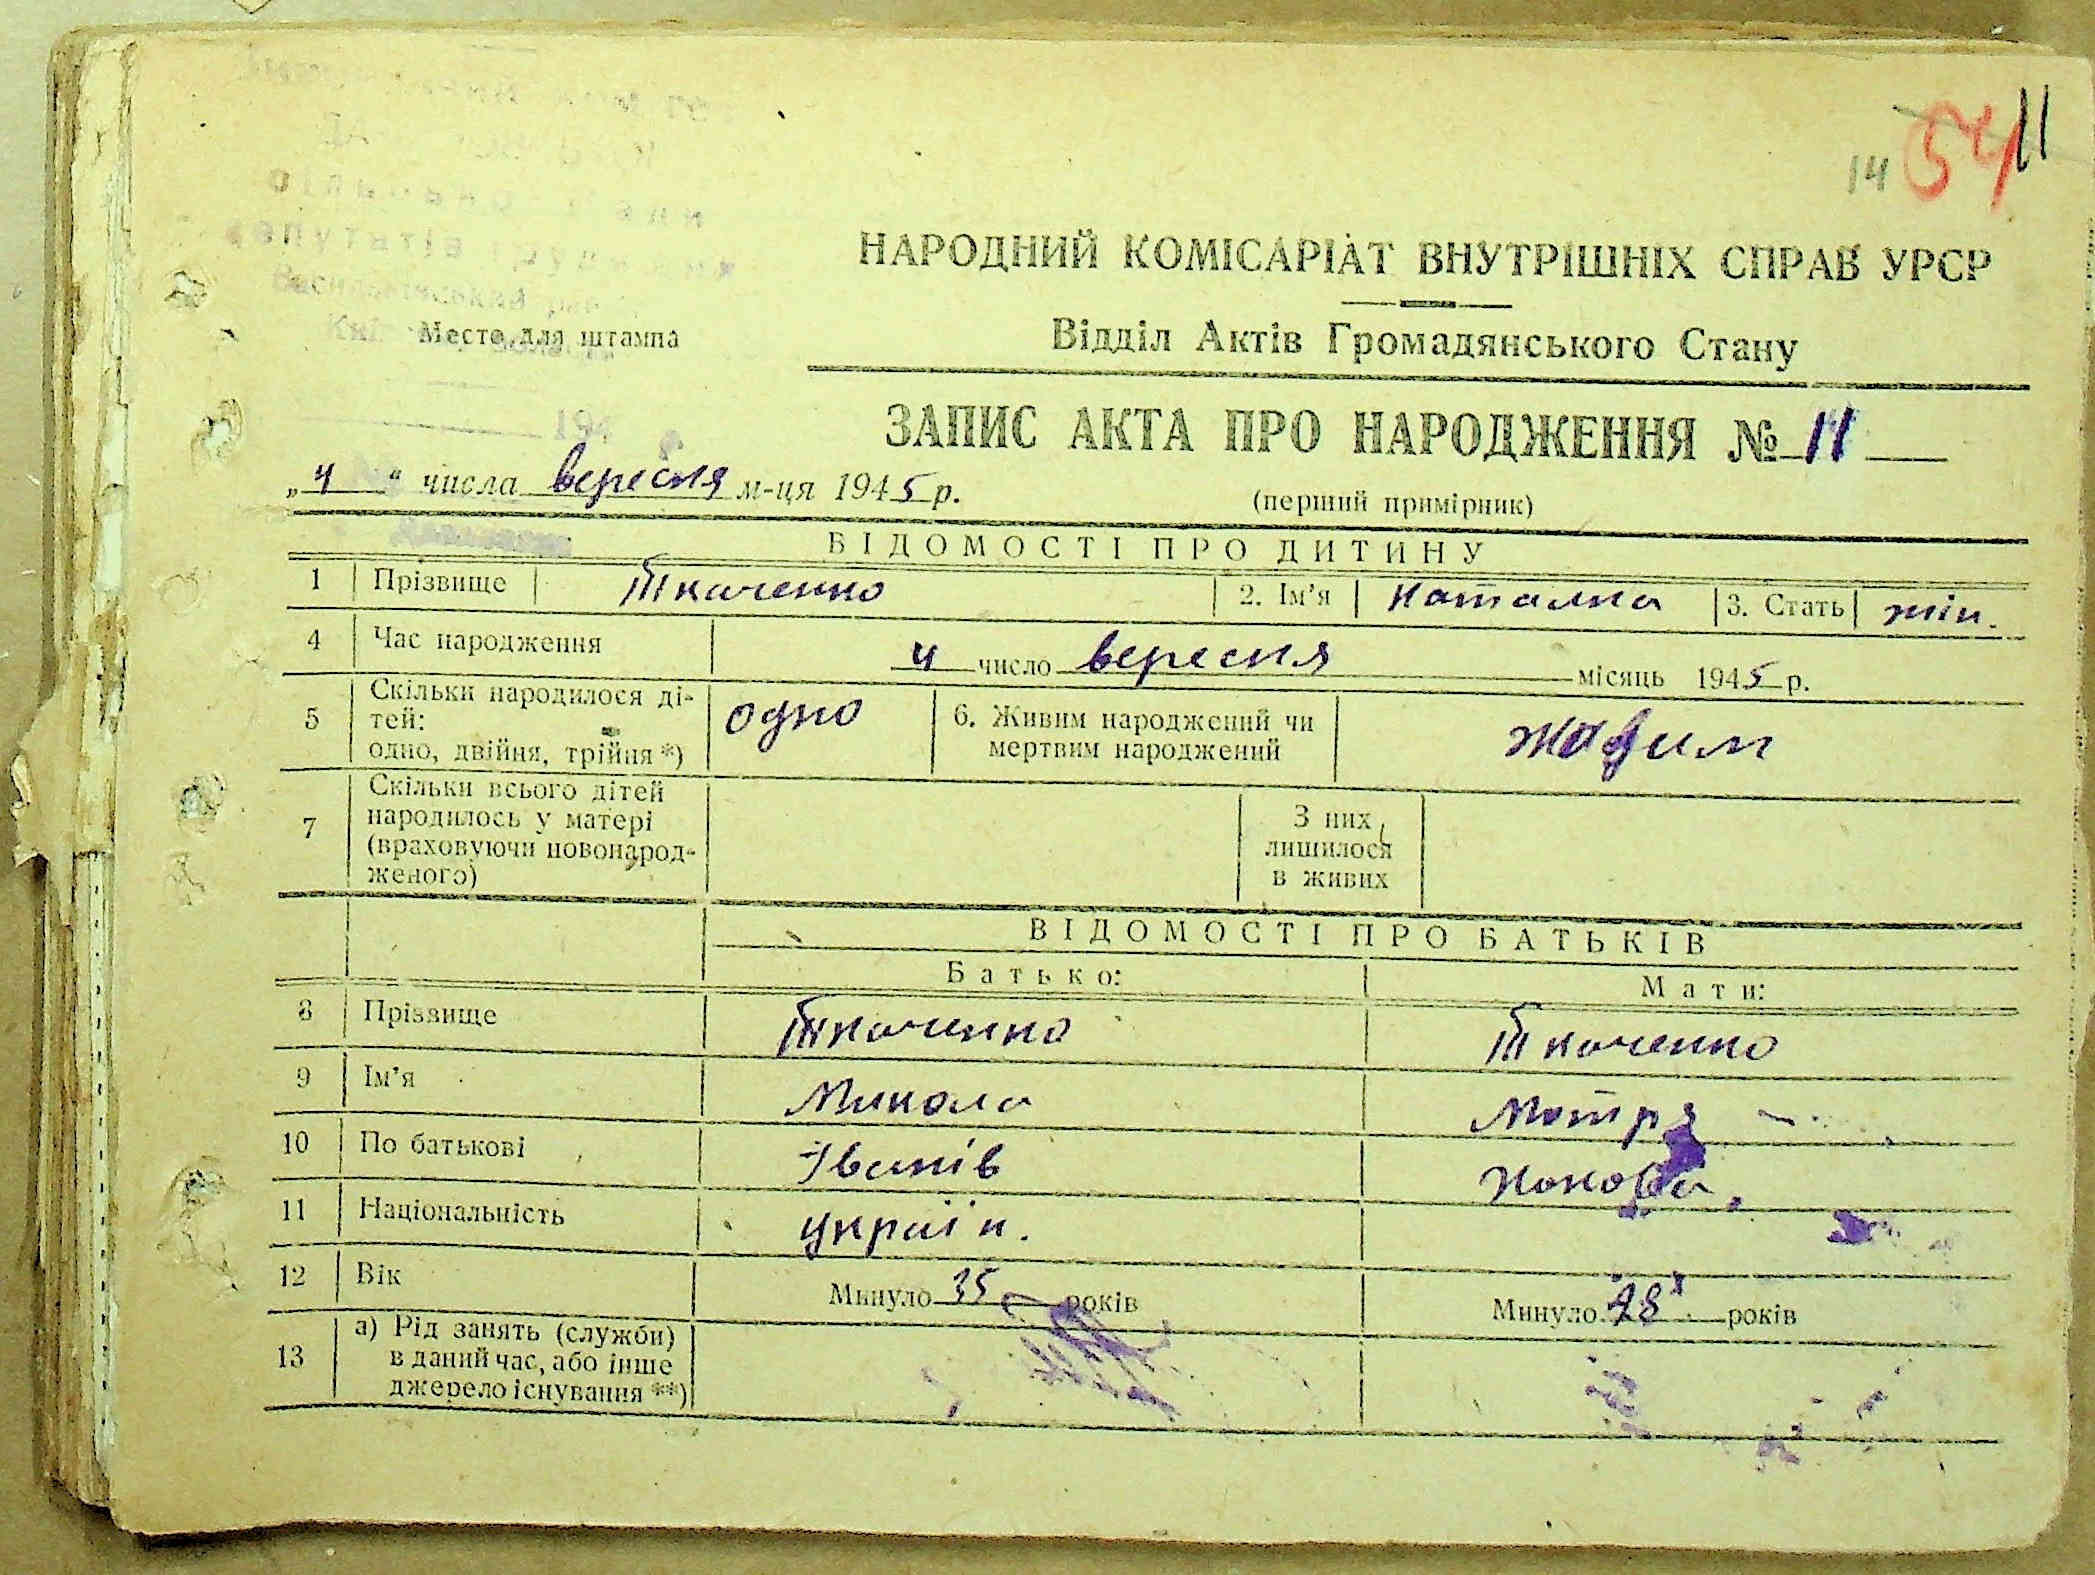 14 54 11
НАРОДНИЙ КОМІСАРІАТ ВНУТРІШНІХ СПРАВ УРСР
депутатів
Место для штампа
Відділ Актів Громадянського Стану
194
ЗАПИС АКТА ПРО НАРОДЖЕННЯ № 11
„4“ числа вересня м-ця 1945 р.
(перший примірник)
ВІДОМОСТІ ПРО ДИТИНУ
1 Прізвище Ткаченко 2. Ім'я Наталка 3. Стать жін.
4 Час народження 4 число вересня місяць 1945 р.
5 Скільки народилося ді-
тей:
одно, двійня, трійня *)
одно
6. Живим народжений чи
мертвим народжений
живим
7 Скільки всього дітей
народилось у матері
(враховуючи новонарод-
женого)
З них
лишилося
в живих
ВІДОМОСТІ ПРО БАТЬКІВ
Батько: Мати:
8 Прізвище Ткаченко Ткаченко
9 Ім'я Микола Мотря
10 По батькові Іванів
11 Національність україн.
12 Вік Минуло 35 років Минуло 28 років
13 а) Рід занять (служби)
в даний час, або інше
джерело існування **)